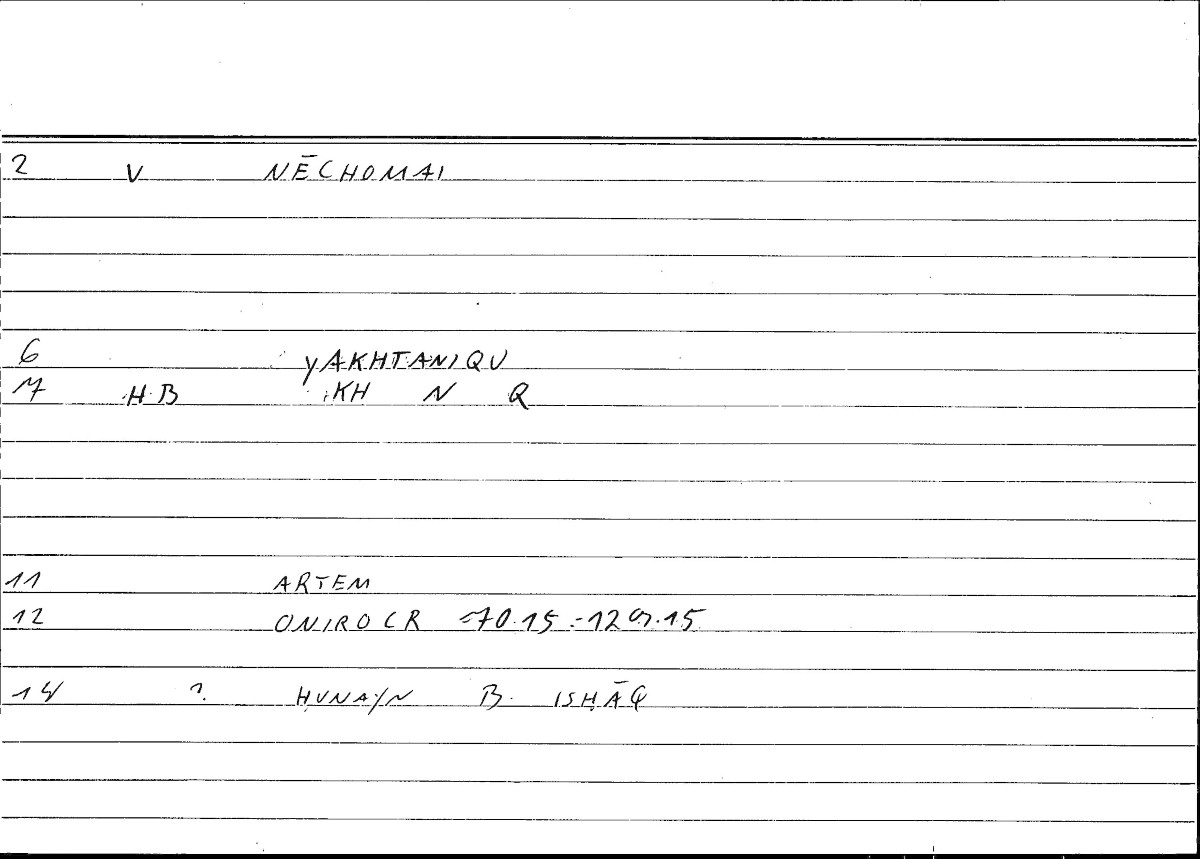 2 V NĒCHOMAI
6 YAKHTANIQU
7 H B KH N Q
11 ARTEM
12 ONIROCR =70.15 :-129.15
14 ? ḤUNAYN B. ISḤĀQ